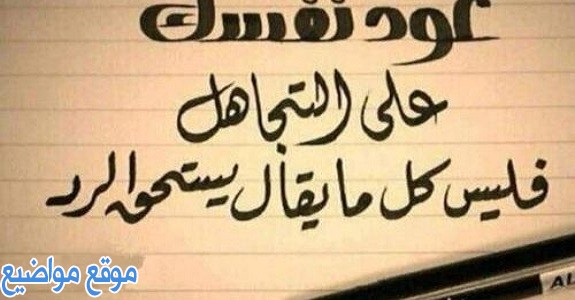 عود نفسك
على التجاهل
فليس كل ما يقال يستحق الرد
موقع مواضيع
AL